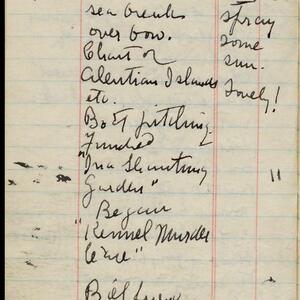 sea breaks
over bow.
Chart of
Aleutian Islands
etc.
Boat pitching.
Finished
"In a Shantung
Garden"
Began
"Kennel Murder
Case"
spray
some
sun.
Lovely!